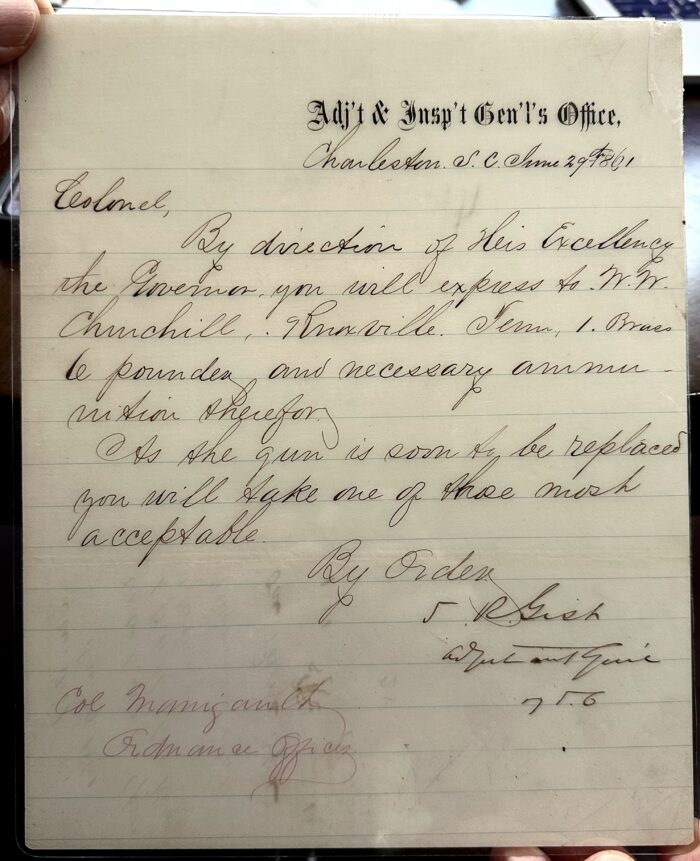 Adj't & Insp't Gen'l's Office,
Charleston. S. C. June 29th 1861
Colonel,
By direction of His Excellency
the Governor, you will express to W. W.
Churchill, Knoxville. Tenn, 1. Brass
6 pounder, and necessary ammu-
nition therefor.
As the gun is soon to be replaced
you will take one of those most
acceptable.
By Order
S. R. Gist
Adjutant Gen'l
Col Manigault
Ordnance Officer